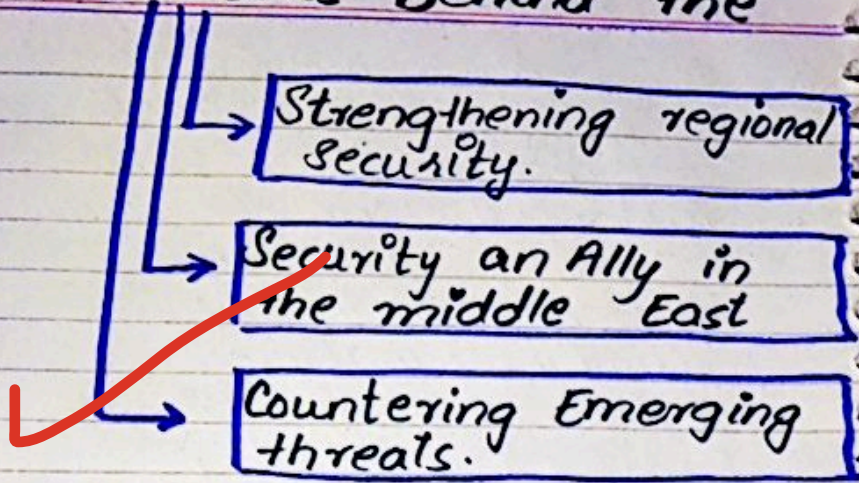 the
Strengthening regional
security.
Security an Ally in
the middle East
Countering Emerging
threats.